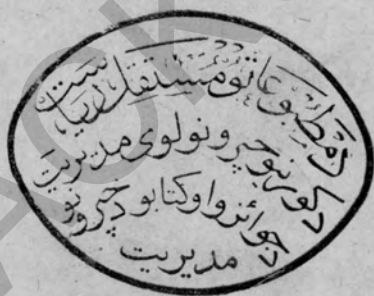 د مطبوعاتو مستقل ریاست
د کورنیو خپرونو لوی مدیریت
د جوائزو او کتابو د خپرونو
مدیریت